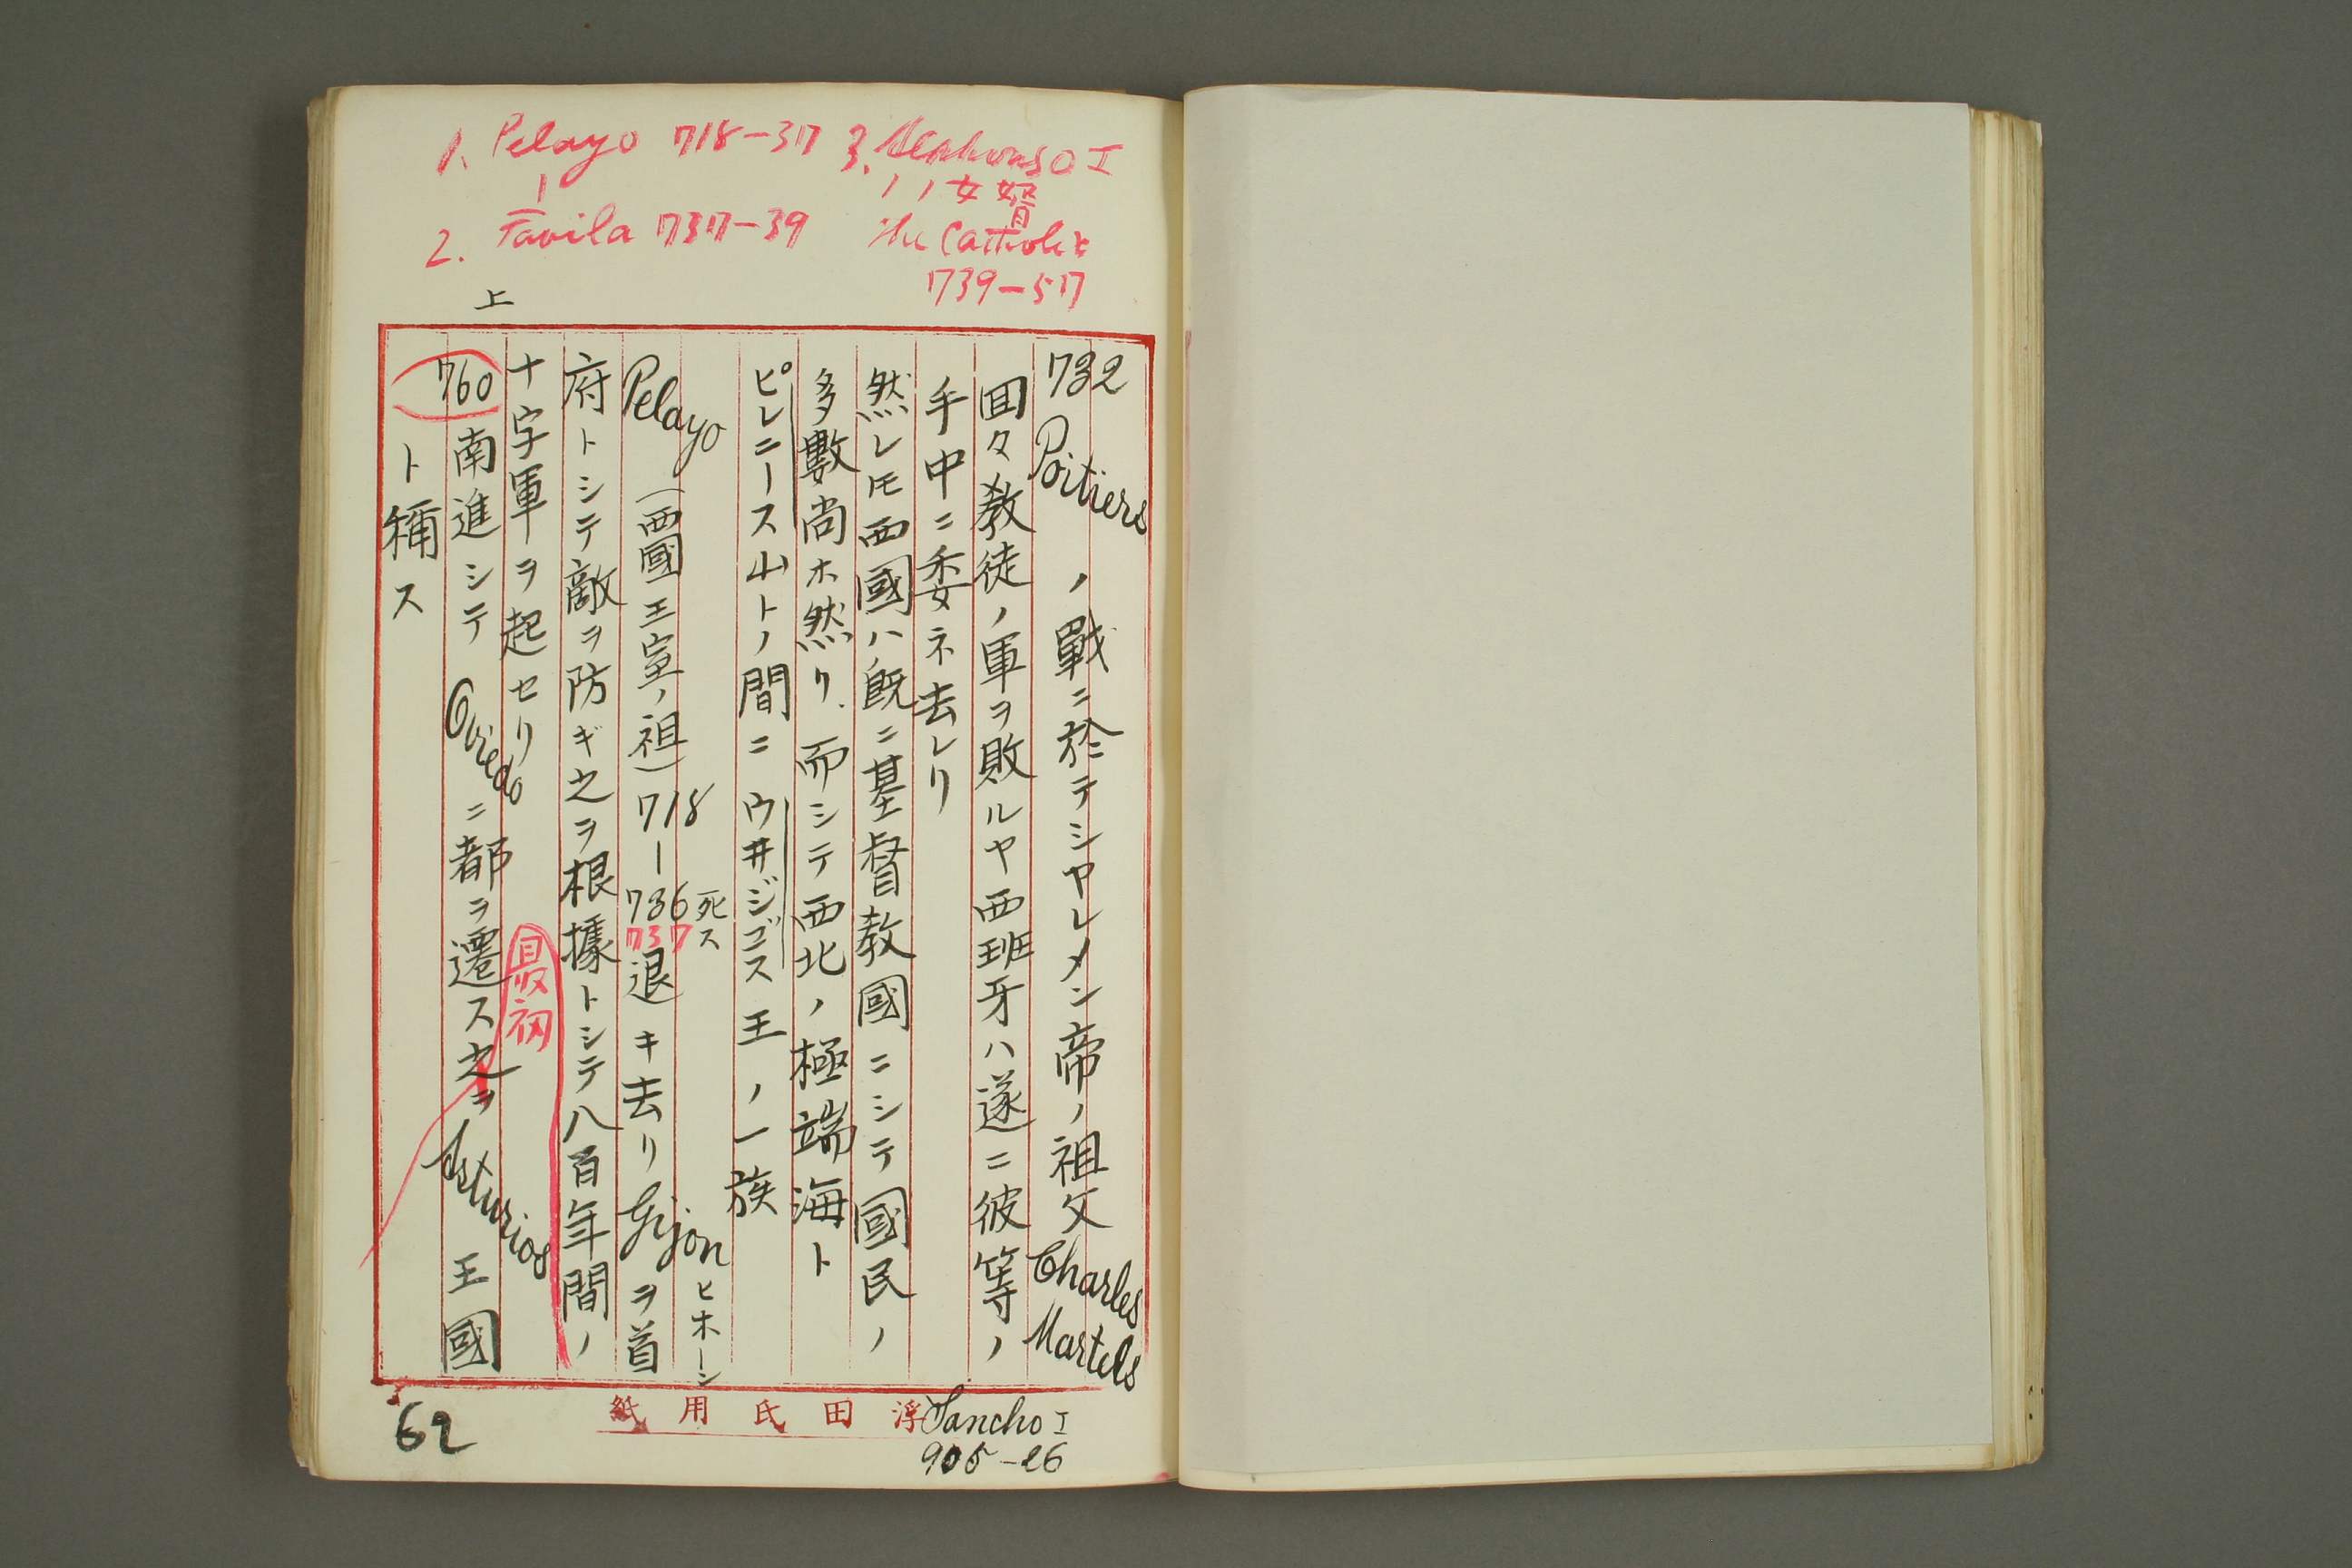 1. Pelayo 718-37
2. Favila 737-39
3. Alphonso I
ノ女婿
the Catholic
739-57
上
732 Poitiers ノ戰ニ於テシヤレメン帝ノ祖父 Charles Martels
囬々敎徒ノ軍ヲ敗ルヤ西班牙ハ遂ニ彼等ノ
手中ニ委ネ去レリ
然レ𪜈西國ハ旣ニ基督教國ニシテ國民ノ
多數尚ホ然リ.而シテ西北ノ極端海ト
ピレニース山トノ間ニウ井ジゴス王ノ一族
Pelayo(西國王室ノ祖)718-736死ス 737 退キ去リGijonヒホーンヲ首
府トシテ敵ヲ防ギ之ヲ根據トシテ八百年間ノ
十字軍ヲ起セリ 最初
760南進シテOviedoニ都ヲ遷ス之ヲAsturias王國
ト稱ス
浮田氏用紙
Sancho I
905-26
62